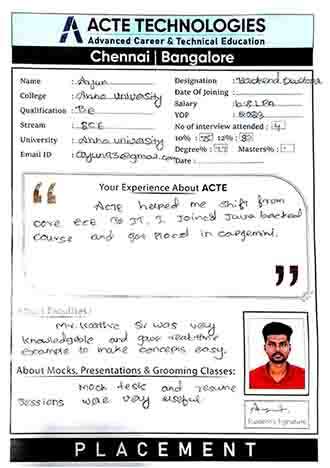 ACTE TECHNOLOGIES
Advanced Career & Technical Education
Chennai | Bangalore
Name : Arjun
Designation : Backend
College : Anna University
Date Of Joining :
Qualification : BE
Salary :
Stream : ECE
YOP :
University : Anna University
No of interview attended : 4
10% : 12% :
Email ID :
Degree% : Masters% :
Date :
Your Experience About ACTE
ACTE helped me shift from
core ECE to IT. I joined Java backend
course and got placed in capgemini.
Mr. Karthic Sir was very
knowledgible and gave real-time
example to make concepts easy.
About Mocks, Presentations & Grooming Classes:
Mock tests and resume
sessions were very useful
Student's Signature
PLACEMENT